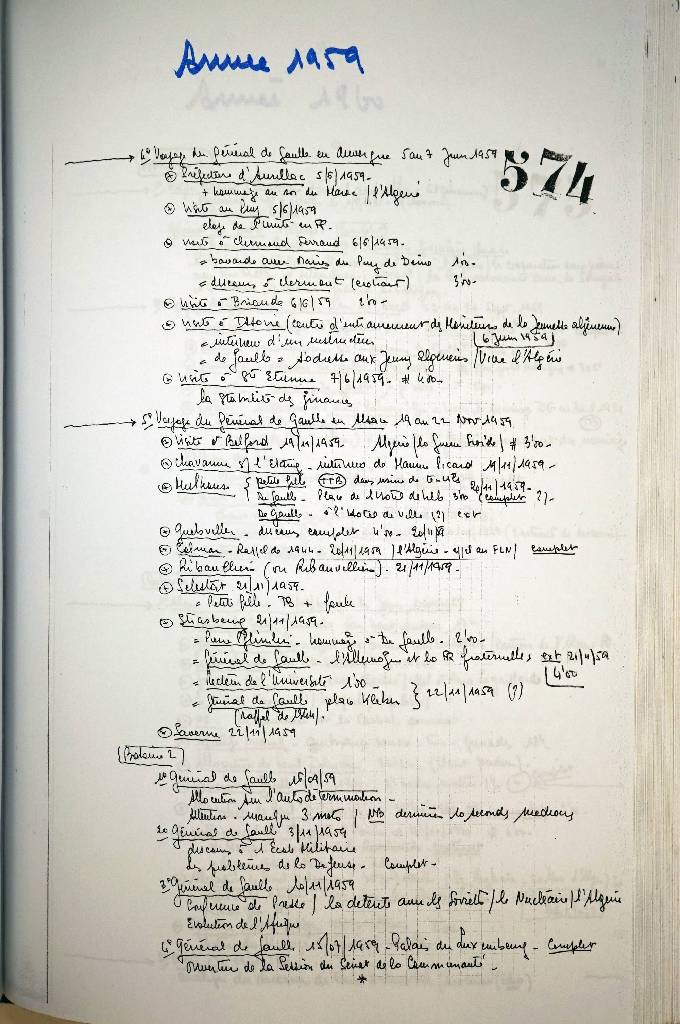 Année 1959
574
4° Voyage du Général de Gaulle en Auvergne 5 au 7 Juin 1959
Préfecture d'Aurillac 5/6/1959-
+ hommage au roi du Maroc / l'Algérie
Visite au Puy 5/6/1959
eloge de l'unité en
visite à Clermond Ferrand 6/6/1959-
= bavarde avec Maires du Puy de Dôme 1'00-
= discours à Clermont (extrait) 3'00-
visite à Brioude 6/6/59 2'00-
visite à Issoire (centre d'entrainement des Moniteurs de la Jeunesse algérienne)
= interview d'un instructeur 6 Juin 1959
= de Gaulle = S'adresse aux Jeunes algeriens / Vive l'Algérie
Visite à St Etienne 7/6/1959- # 4'00-
la Stabilité des finances
5° Voyage du Général de Gaulle en Alsace 19 au 22 Nov 1959
Visite à Belford 19/11/1959. Algérie / la Guerre Froide / # 3'00-
Chavanne s/ l'Etang - interview de Mamie Picard 19/11/1959-
Mulhouse petite fille TTB dans usine de textile 20/11/1959-
De Gaulle - Place de l'Hotel de Ville 3'00 (complet ?)-
De Gaulle - à l'Hotel de Ville (?) ext
Guebviller - discours complet 4'00- 20/11/59
Colmar - Rappel de 1944 - 20/11/1959 / l'Algérie - appel au FLN / complet
Ribauvillier (ou Ribauvellien). 21/11/1959-
Selestat 21/11/1959-
= Petite fille - TB + foule
Strasbourg 21/11/1959-
= Pierre Pflimlin - hommage à De Gaulle - 2'00-
= Général de Gaulle - l'Allemagne et la fraternelles ext 21/11/59
4'00
= Recteur de l'Université 1'00
= Général de Gaulle place Kleber } 22/11/1959 (?)
(rappel de 1944).
Saverne 22/11/1959
(Bobine 2)
1° Général de Gaulle 16/09/59
Allocution sur l'autodétermination -
Attention - manque 3 mots / NB dernières 10 seconds mediocres
2° Général de Gaulle 3/11/1959
discours à l'Ecole Militaire
Les problèmes de la Defense - Complet-
3° Général de Gaulle 10/11/1959
Conférence de Presse / la detente avec les Soviets / le Nucléaire / l'Algérie
Evolution de l'Afrique
4° Général de Gaulle 15/07/1959 - Palais du Luxembourg - Complet
Ouverture de la Session du Sénat de la Communauté -
*